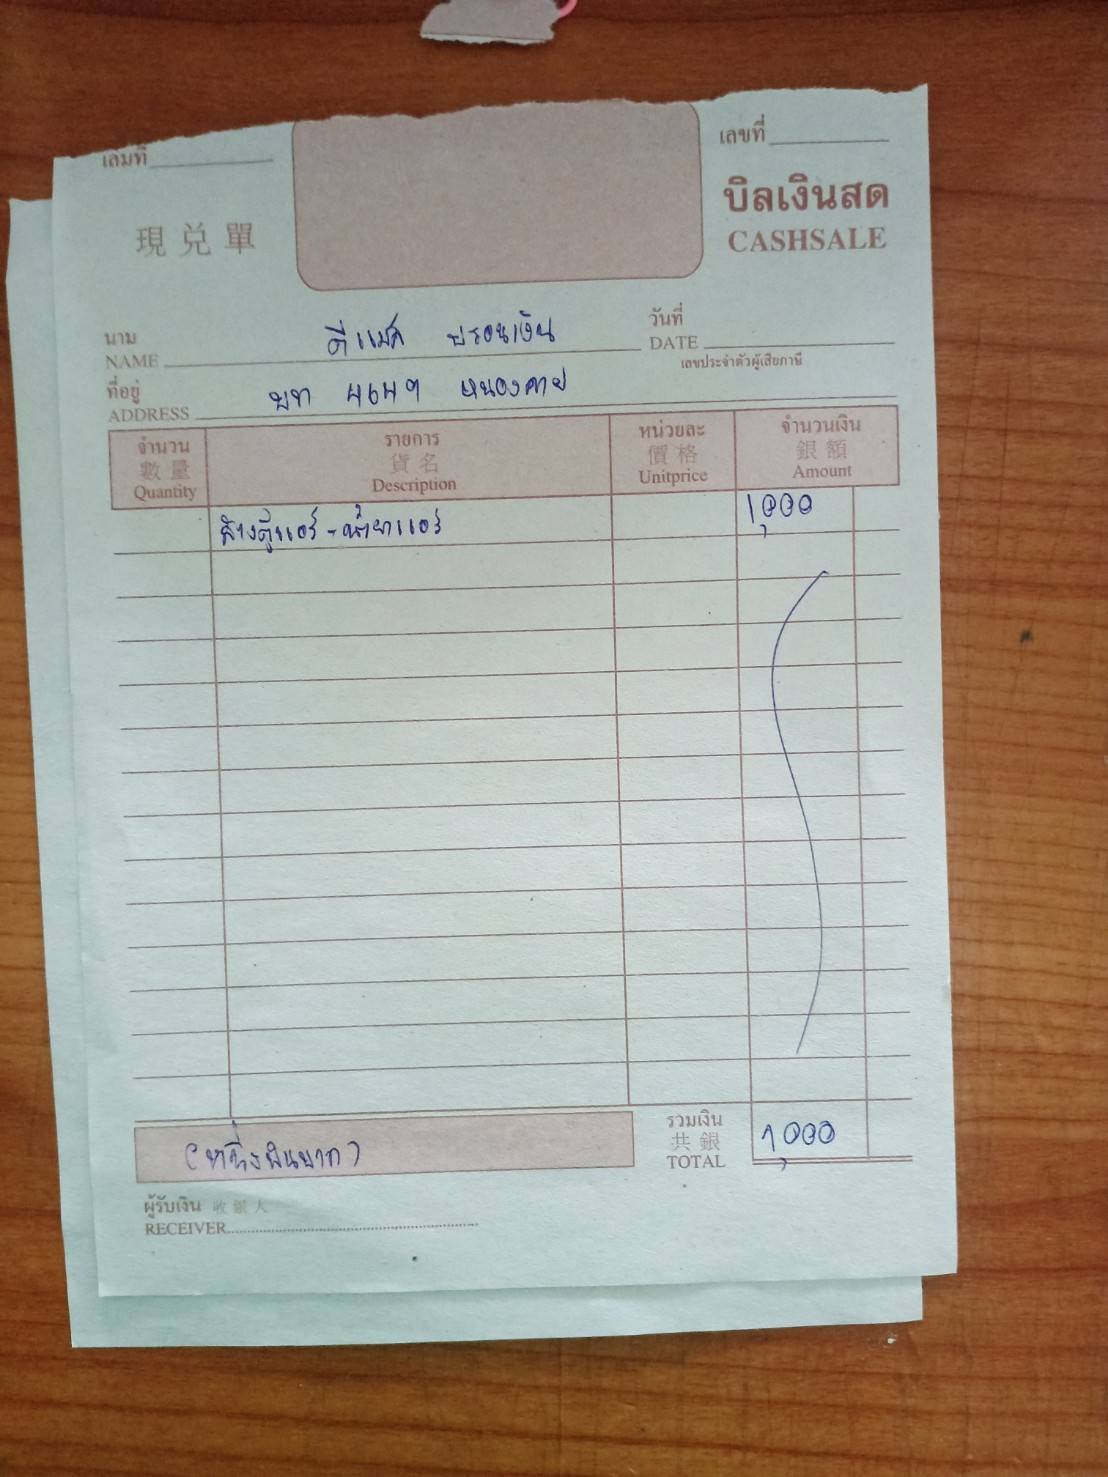 เล่มที่
เลขที่
現兌單
บิลเงินสด
CASHSALE
นาม
NAME
ดีแมค พรอนเงิน
วันที่
DATE
เลขประจำตัวผู้เสียภาษี
ที่อยู่
ADDRESS
บท 4649 หนองคาย
จำนวน รายการ หน่วยละ จำนวนเงิน
數量 貨名 價格 銀額
Quantity Description Unitprice Amount
ล้างตู้แอร์ - น้ำยาแอร์ 1,000
รวมเงิน
共銀
TOTAL
(หนึ่งพันบาท) 1,000
ผู้รับเงิน 收銀人
RECEIVER